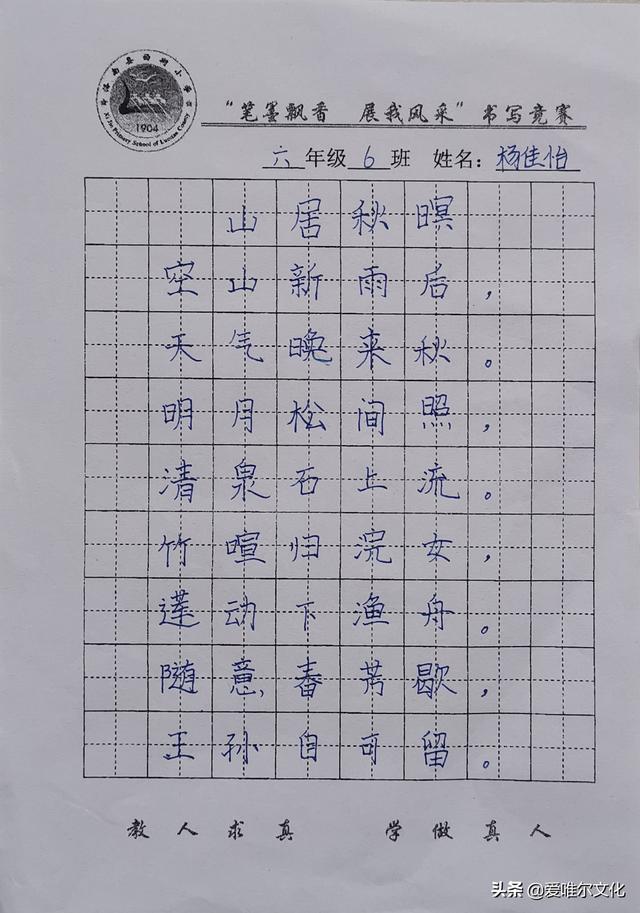 1904
Primary School of
“笔墨飘香 展我风采”书写竞赛
六年级6班 姓名：杨佳怡
山居秋暝
空山新雨后，
天气晚来秋。
明月松间照，
清泉石上流。
竹喧归浣女，
莲动下渔舟。
随意春芳歇，
王孙自可留。
教人求真 学做真人
头条 @爱唯尔文化